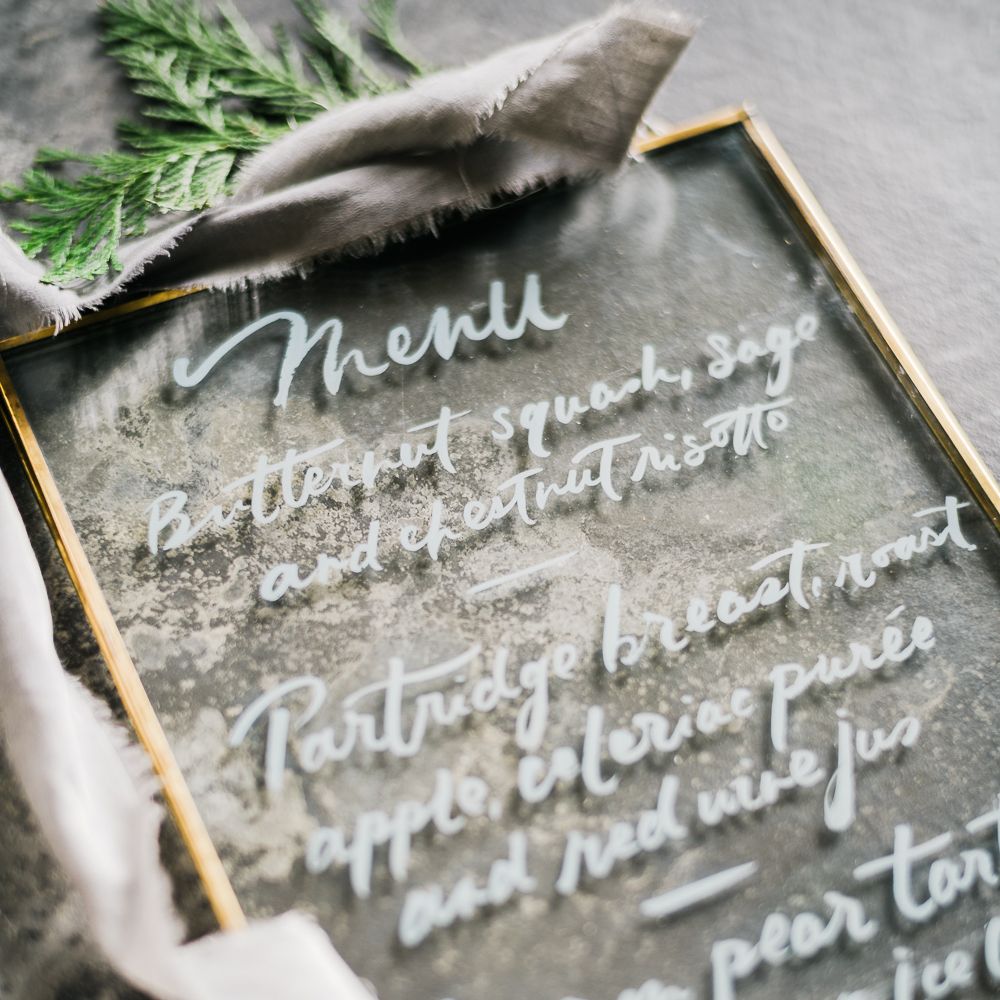 Menu
Butternut squash, sage
and chestnut risotto
Partridge breast, roast
apple, celeriac purée
and red wine jus
pear
ice